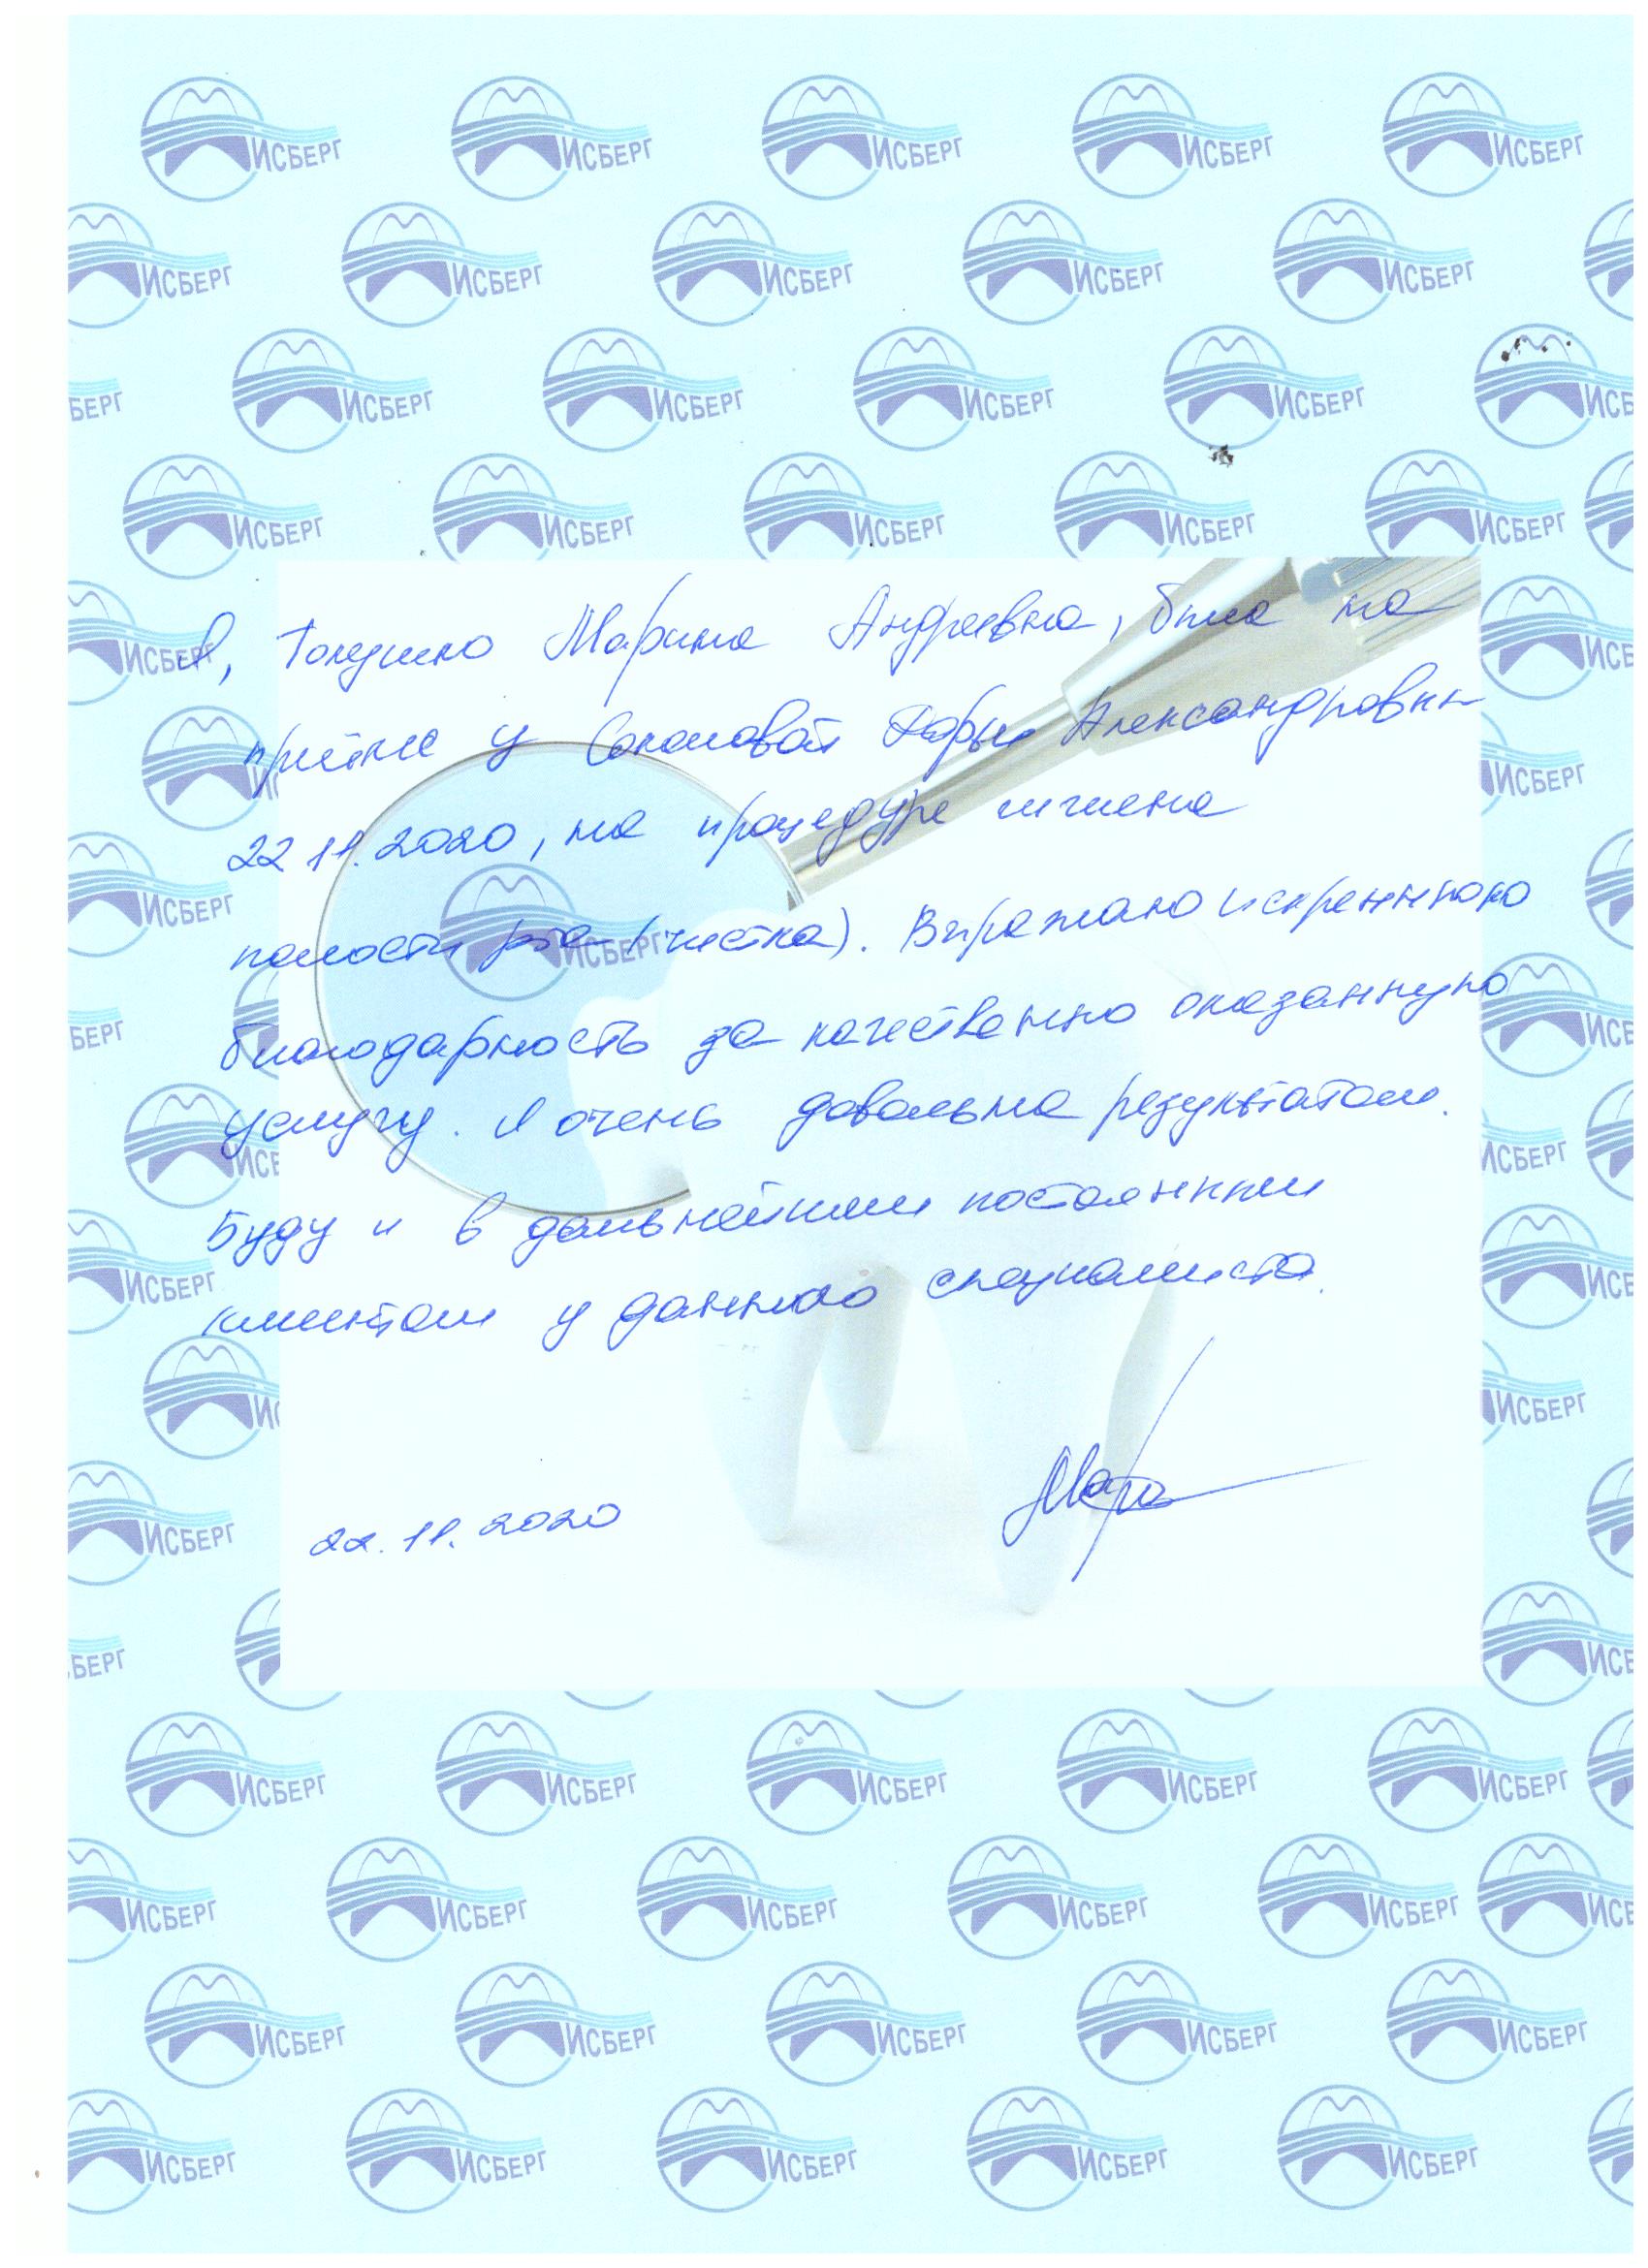 Я, Марина Андреевна, была на
приёме у Соколовой Дарьи Александровны
22.11.2020, на процедуре гигиена
полости рта (чистка). Выражаю искреннюю
благодарность за качественно оказанную
услугу. Я очень довольна результатом.
Буду и в дальнейшем постоянным
клиентом у данного специалиста.
22.11.2020
ИСБЕРГ